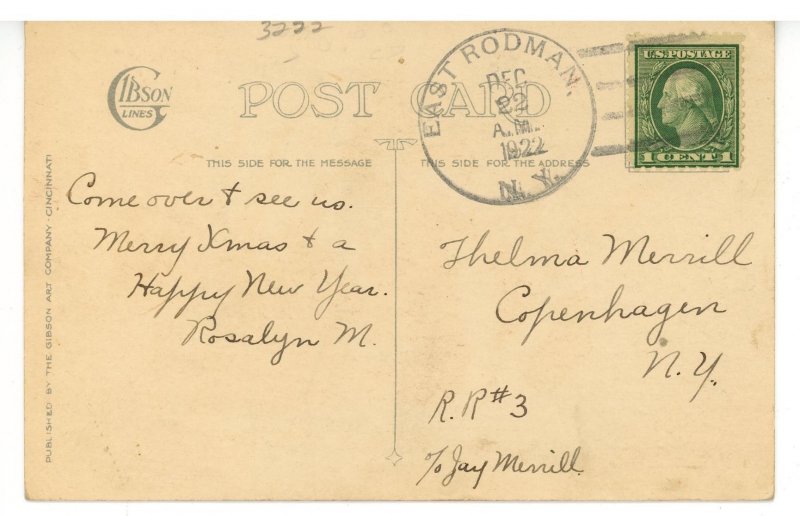 3222
GIBSON
LINES
POST CARD
EAST RODMAN.
DEC
22
A.M.
1922
N.Y.
U.S. POSTAGE
1 CENT 1
THIS SIDE FOR THE MESSAGE
THIS SIDE FOR THE ADDRESS
PUBLISHED BY THE GIBSON ART COMPANY · CINCINNATI
Come over & see us.
Merry Xmas & a
Happy New Year.
Rosalyn M.
Thelma Merrill
Copenhagen
N.Y.
R.R #3
℅ Jay Merrill